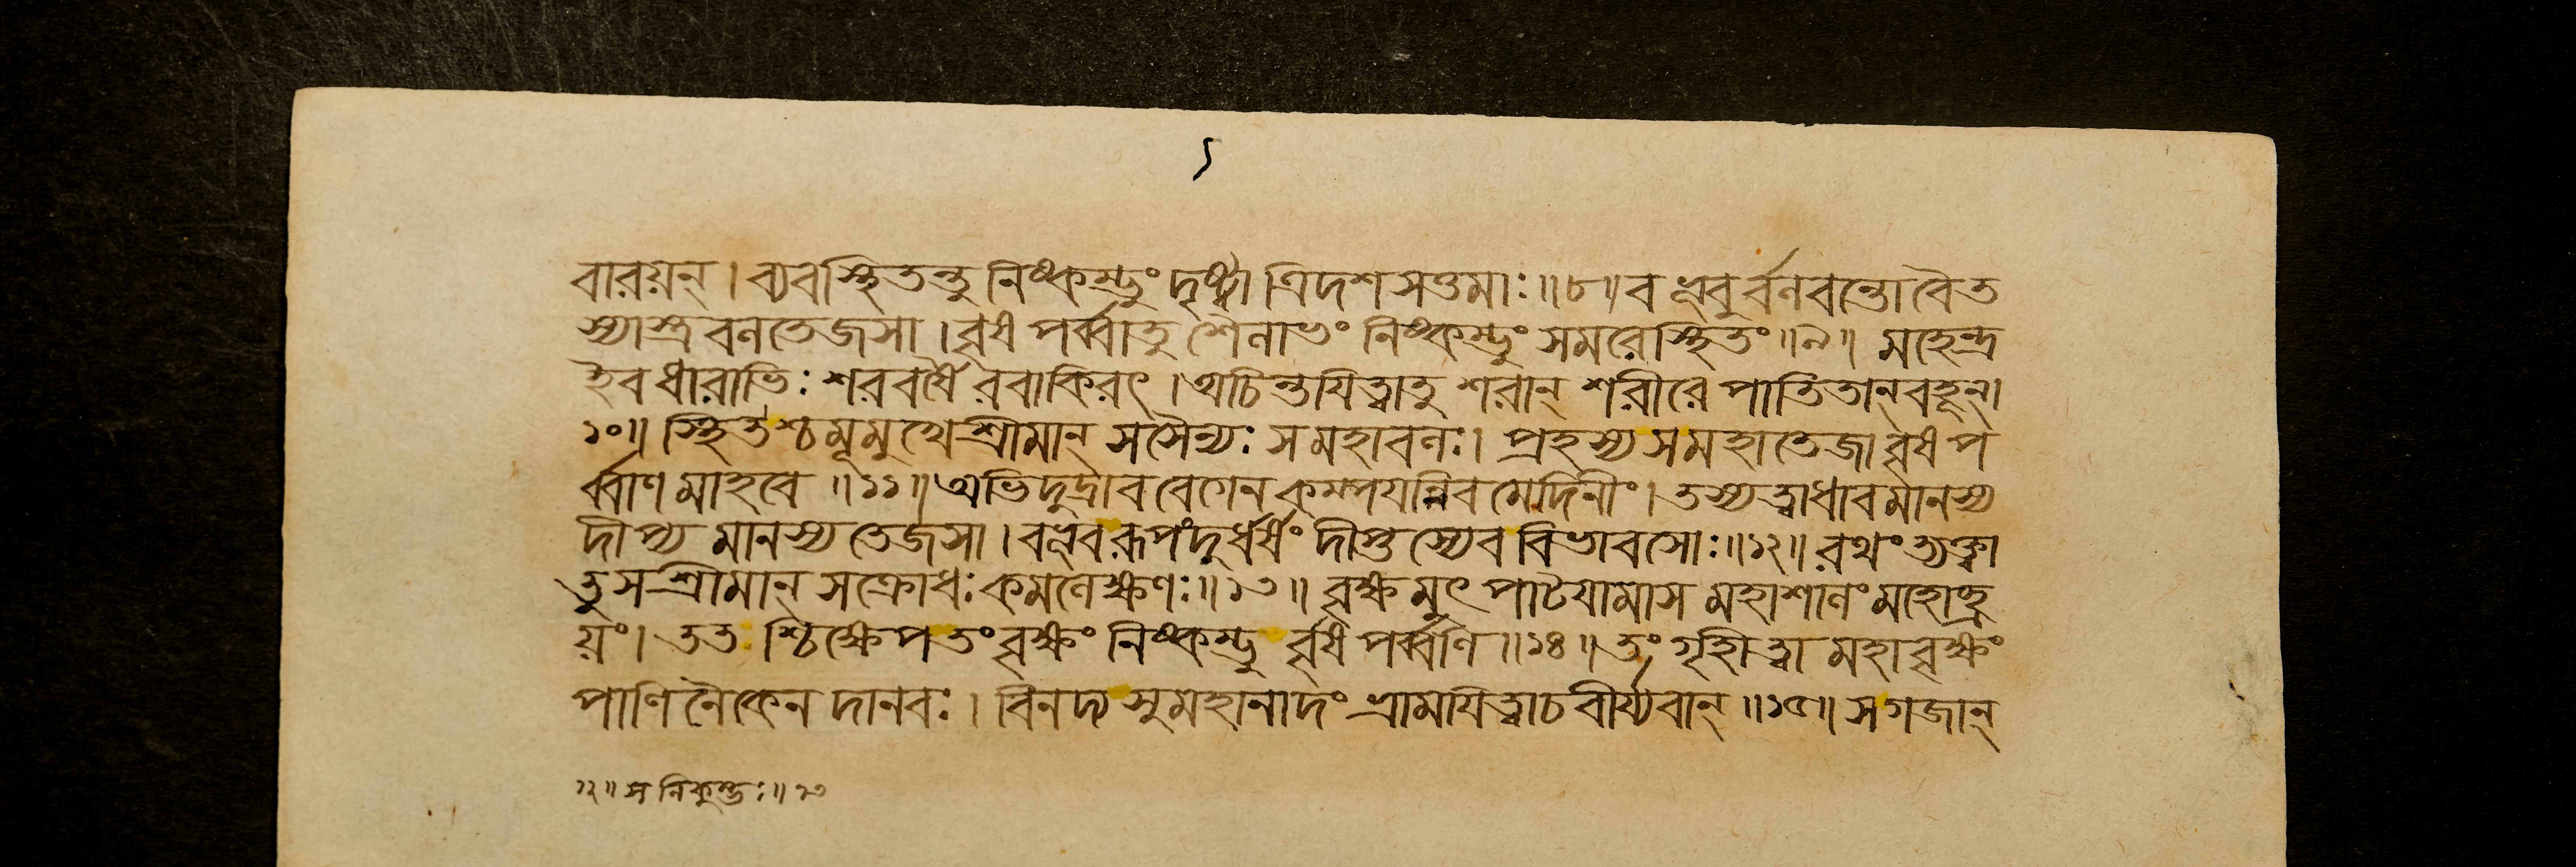 বারয়ন্। ব্যবস্থিতন্তু নিষ্কম্ভুং দৃষ্ট্বা ত্রিদশসত্তমাঃ॥৮॥ ব ভূবুর্বলবন্তো বৈ ত
স্যাস্ত্রবলতেজসা। বৃষপর্ব্বাতু শৈলাভং নিষ্কম্ভুং সমরেস্থিতং॥৯॥ মহেন্দ্র
ইব ধারাভিঃ শরবর্ষৈ রবাকিরৎ। অচিন্তয়িত্বাতু শরান্ শরীরে পাতিতান্ বহূন্।
১০॥ স্থিতশ্চমূমুখে শ্রীমান্ সসৈন্যঃ সমহাবলঃ। প্রহস্য সমহাতেজা বৃষপ
র্ব্বাণ মাহবে॥১১॥ অভিদুদ্রাব বেগেন কম্পয়ন্নিব মেদিনীং। তস্যত্বাধাবমানস্য
দীপ্য মানস্য তেজসা। বভূব রূপং দুর্ধর্ষং দীপ্তস্যেব বিভাবসোঃ॥১২॥ রথং ত্যক্ত্বা
তু স শ্রীমান্ সক্রোধঃ কমলেক্ষণঃ॥১৩॥ বৃক্ষ মুৎ পাটয়ামাস মহাশালং মহোচ্ছ্র
য়ং। তত শ্চিক্ষেপ তং বৃক্ষং নিষ্কম্ভু র্বৃষপর্ব্বণি॥১৪॥ তং গৃহীত্বা মহাবৃক্ষং
পাণি নৈকেন দানবঃ। বিনদ্য সুমহানাদং ভ্রাময়িত্বাচ বীর্য্যবান্॥১৫॥ সগজান্
১২॥ স নিকুম্ভঃ॥ ১৩